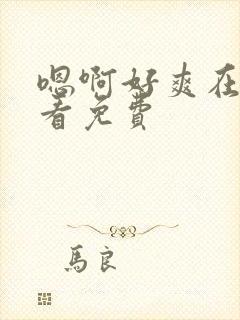 嗯啊好爽在
看免费
馬良